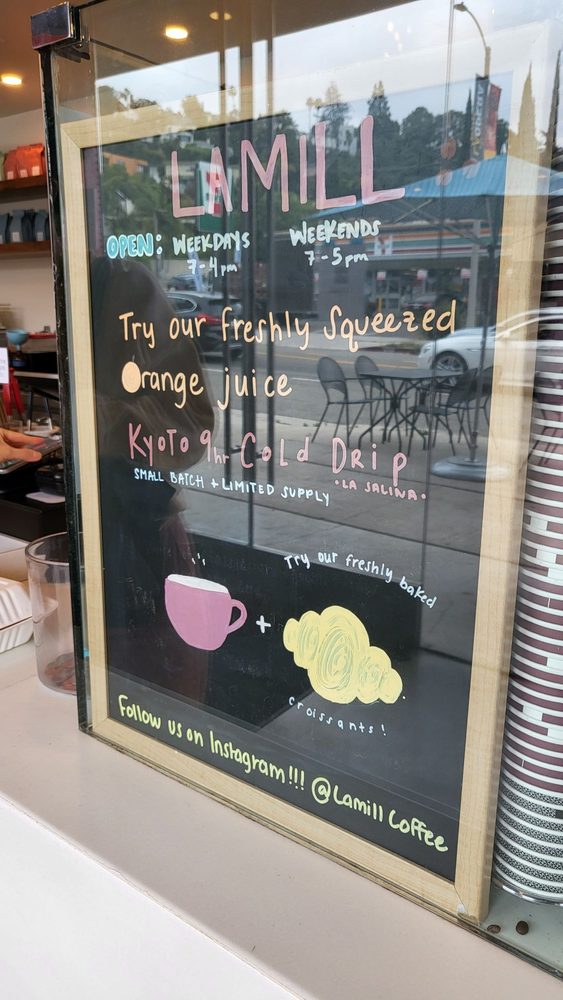 LAMILL
OPEN: WEEKDAYS WEEKENDS
7-4pm 7-5pm
Try our freshly Squeezed
Orange juice
Kyoto 9hr Cold Drip
SMALL BATCH + LIMITED SUPPLY
•LA SALINA•
Try our freshly baked
+
croissants!
Follow us on Instagram!!! @Lamill Coffee